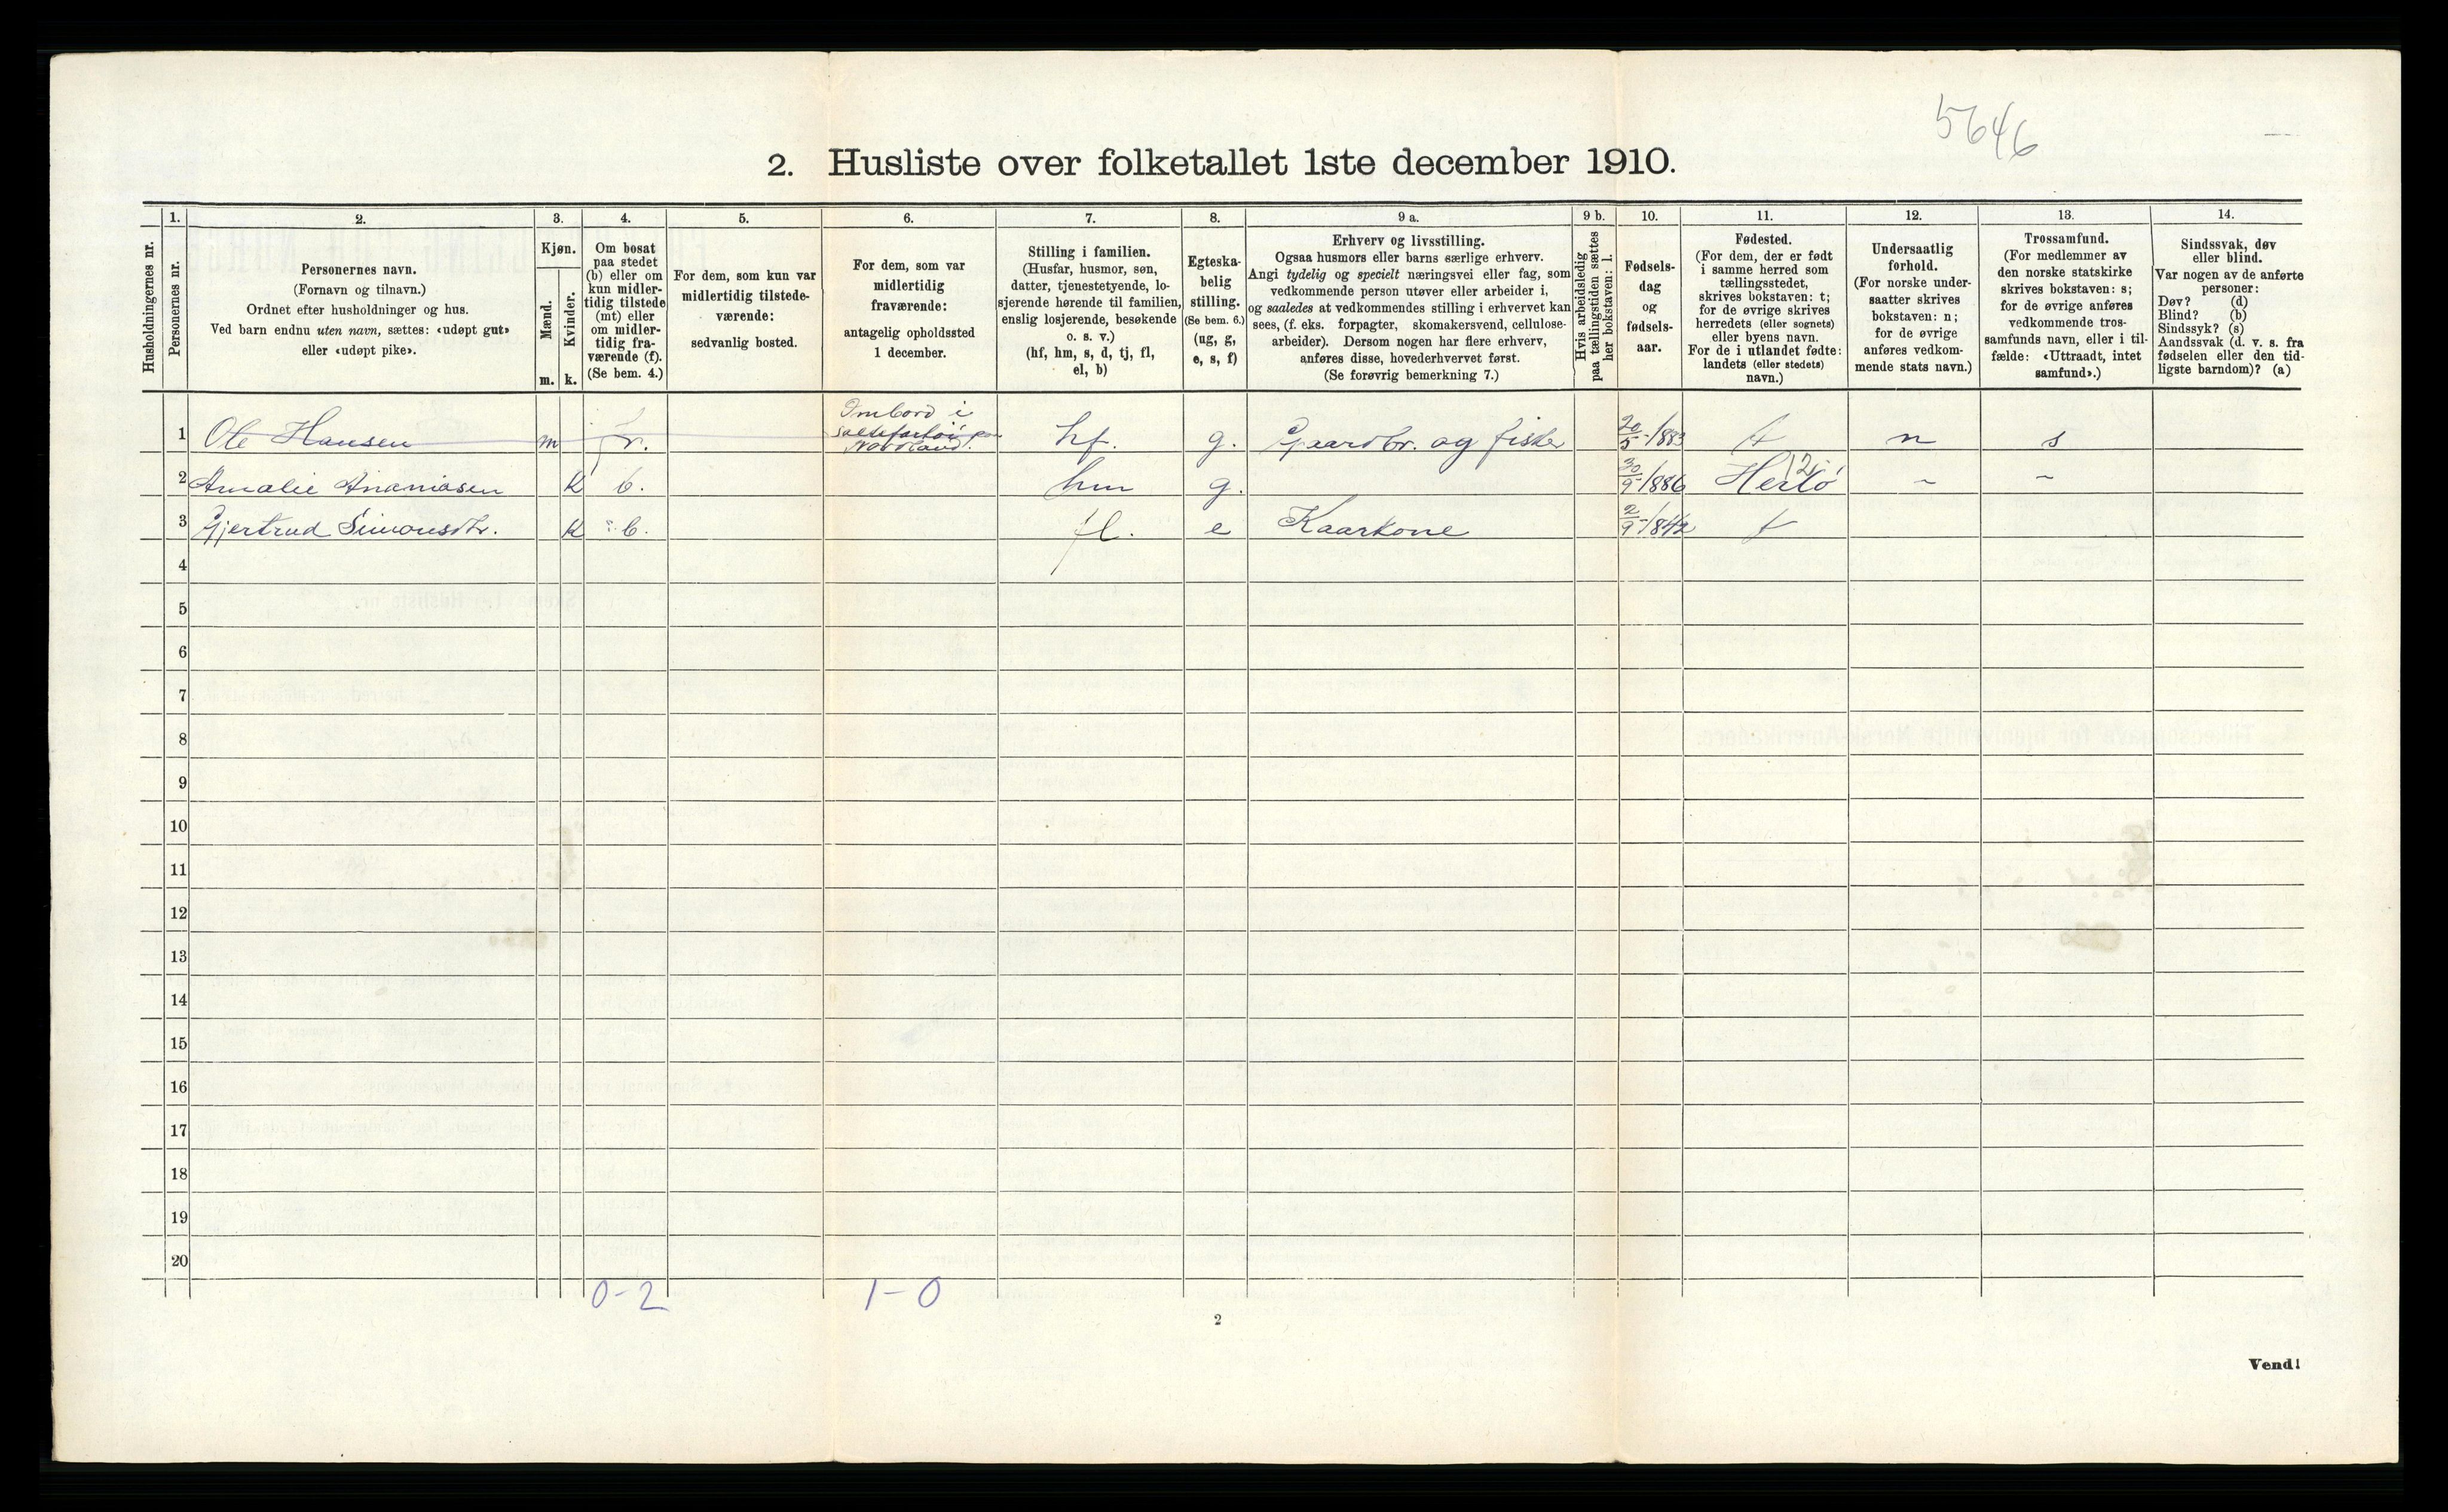 5646
2. Husliste over folketallet 1ste december 1910.
Husholdningernes nr.
1.
Personernes nr.
2.
Personernes navn.
(Fornavn og tilnavn.)
Ordnet efter husholdninger og hus.
Ved barn endnu uten navn, sættes: «udøpt gut»
eller «udøpt pike».
3.
Kjøn.
Mænd.
Kvinder.
m. k.
4.
Om bosat
paa stedet
(b) eller om
kun midler-
tidig tilstede
(mt) eller
om midler-
tidig fra-
værende (f).
(Se bem. 4.)
5.
For dem, som kun var
midlertidig tilstede-
værende:
sedvanlig bosted.
6.
For dem, som var
midlertidig
fraværende:
antagelig opholdssted
1 december.
7.
Stilling i familien.
(Husfar, husmor, søn,
datter, tjenestetyende, lo-
sjerende hørende til familien,
enslig losjerende, besøkende
o. s. v.)
(hf, hm, s, d, tj, fl,
el, b)
8.
Egteska-
belig
stilling.
(Se bem. 6.)
(ug, g,
e, s, f)
9 a.
Erhverv og livsstilling.
Ogsaa husmors eller barns særlige erhverv.
Angi tydelig og specielt næringsvei eller fag, som
vedkommende person utøver eller arbeider i,
og saaledes at vedkommendes stilling i erhvervet kan
sees, (f. eks. forpagter, skomakersvend, cellulose-
arbeider). Dersom nogen har flere erhverv,
anføres disse, hovederhvervet først.
(Se forøvrig bemerkning 7.)
9 b.
Hvis arbeidsledig
paa tællingstiden sættes
her bokstaven: l.
10.
Fødsels-
dag
og
fødsels-
aar.
11.
Fødested.
(For dem, der er født
i samme herred som
tællingsstedet,
skrives bokstaven: t;
for de øvrige skrives
herredets (eller sognets)
eller byens navn.
For de i utlandet fødte:
landets (eller stedets)
navn.)
12.
Undersaatlig
forhold.
(For norske under-
saatter skrives
bokstaven: n;
for de øvrige
anføres vedkom-
mende stats navn.)
13.
Trossamfund.
(For medlemmer av
den norske statskirke
skrives bokstaven: s;
for de øvrige anføres
vedkommende tros-
samfunds navn, eller i til-
fælde: «Uttraadt, intet
samfund».)
14.
Sindssvak, døv
eller blind.
Var nogen av de anførte
personer:
Døv? (d)
Blind? (b)
Sindssyk? (s)
Aandssvak (d. v. s. fra
fødselen eller den tid-
ligste barndom)? (a)
Ombord i
paa
Nordland.
1 Ole Hansen m hf. g. Gaardbr. og fisker 20/5-1883 t n s
2 Amalie Ananiasen k b. hm g. 30/9-1886 Herlö 12 ~ ~
3 Gjertrud Simonsdtr. k b. fl. e Kaarkone 2/9-1842 t
4
5
6
7
8
9
10
11
12
13
14
15
16
17
18
19
20
0-2 1-0
2
Vend!